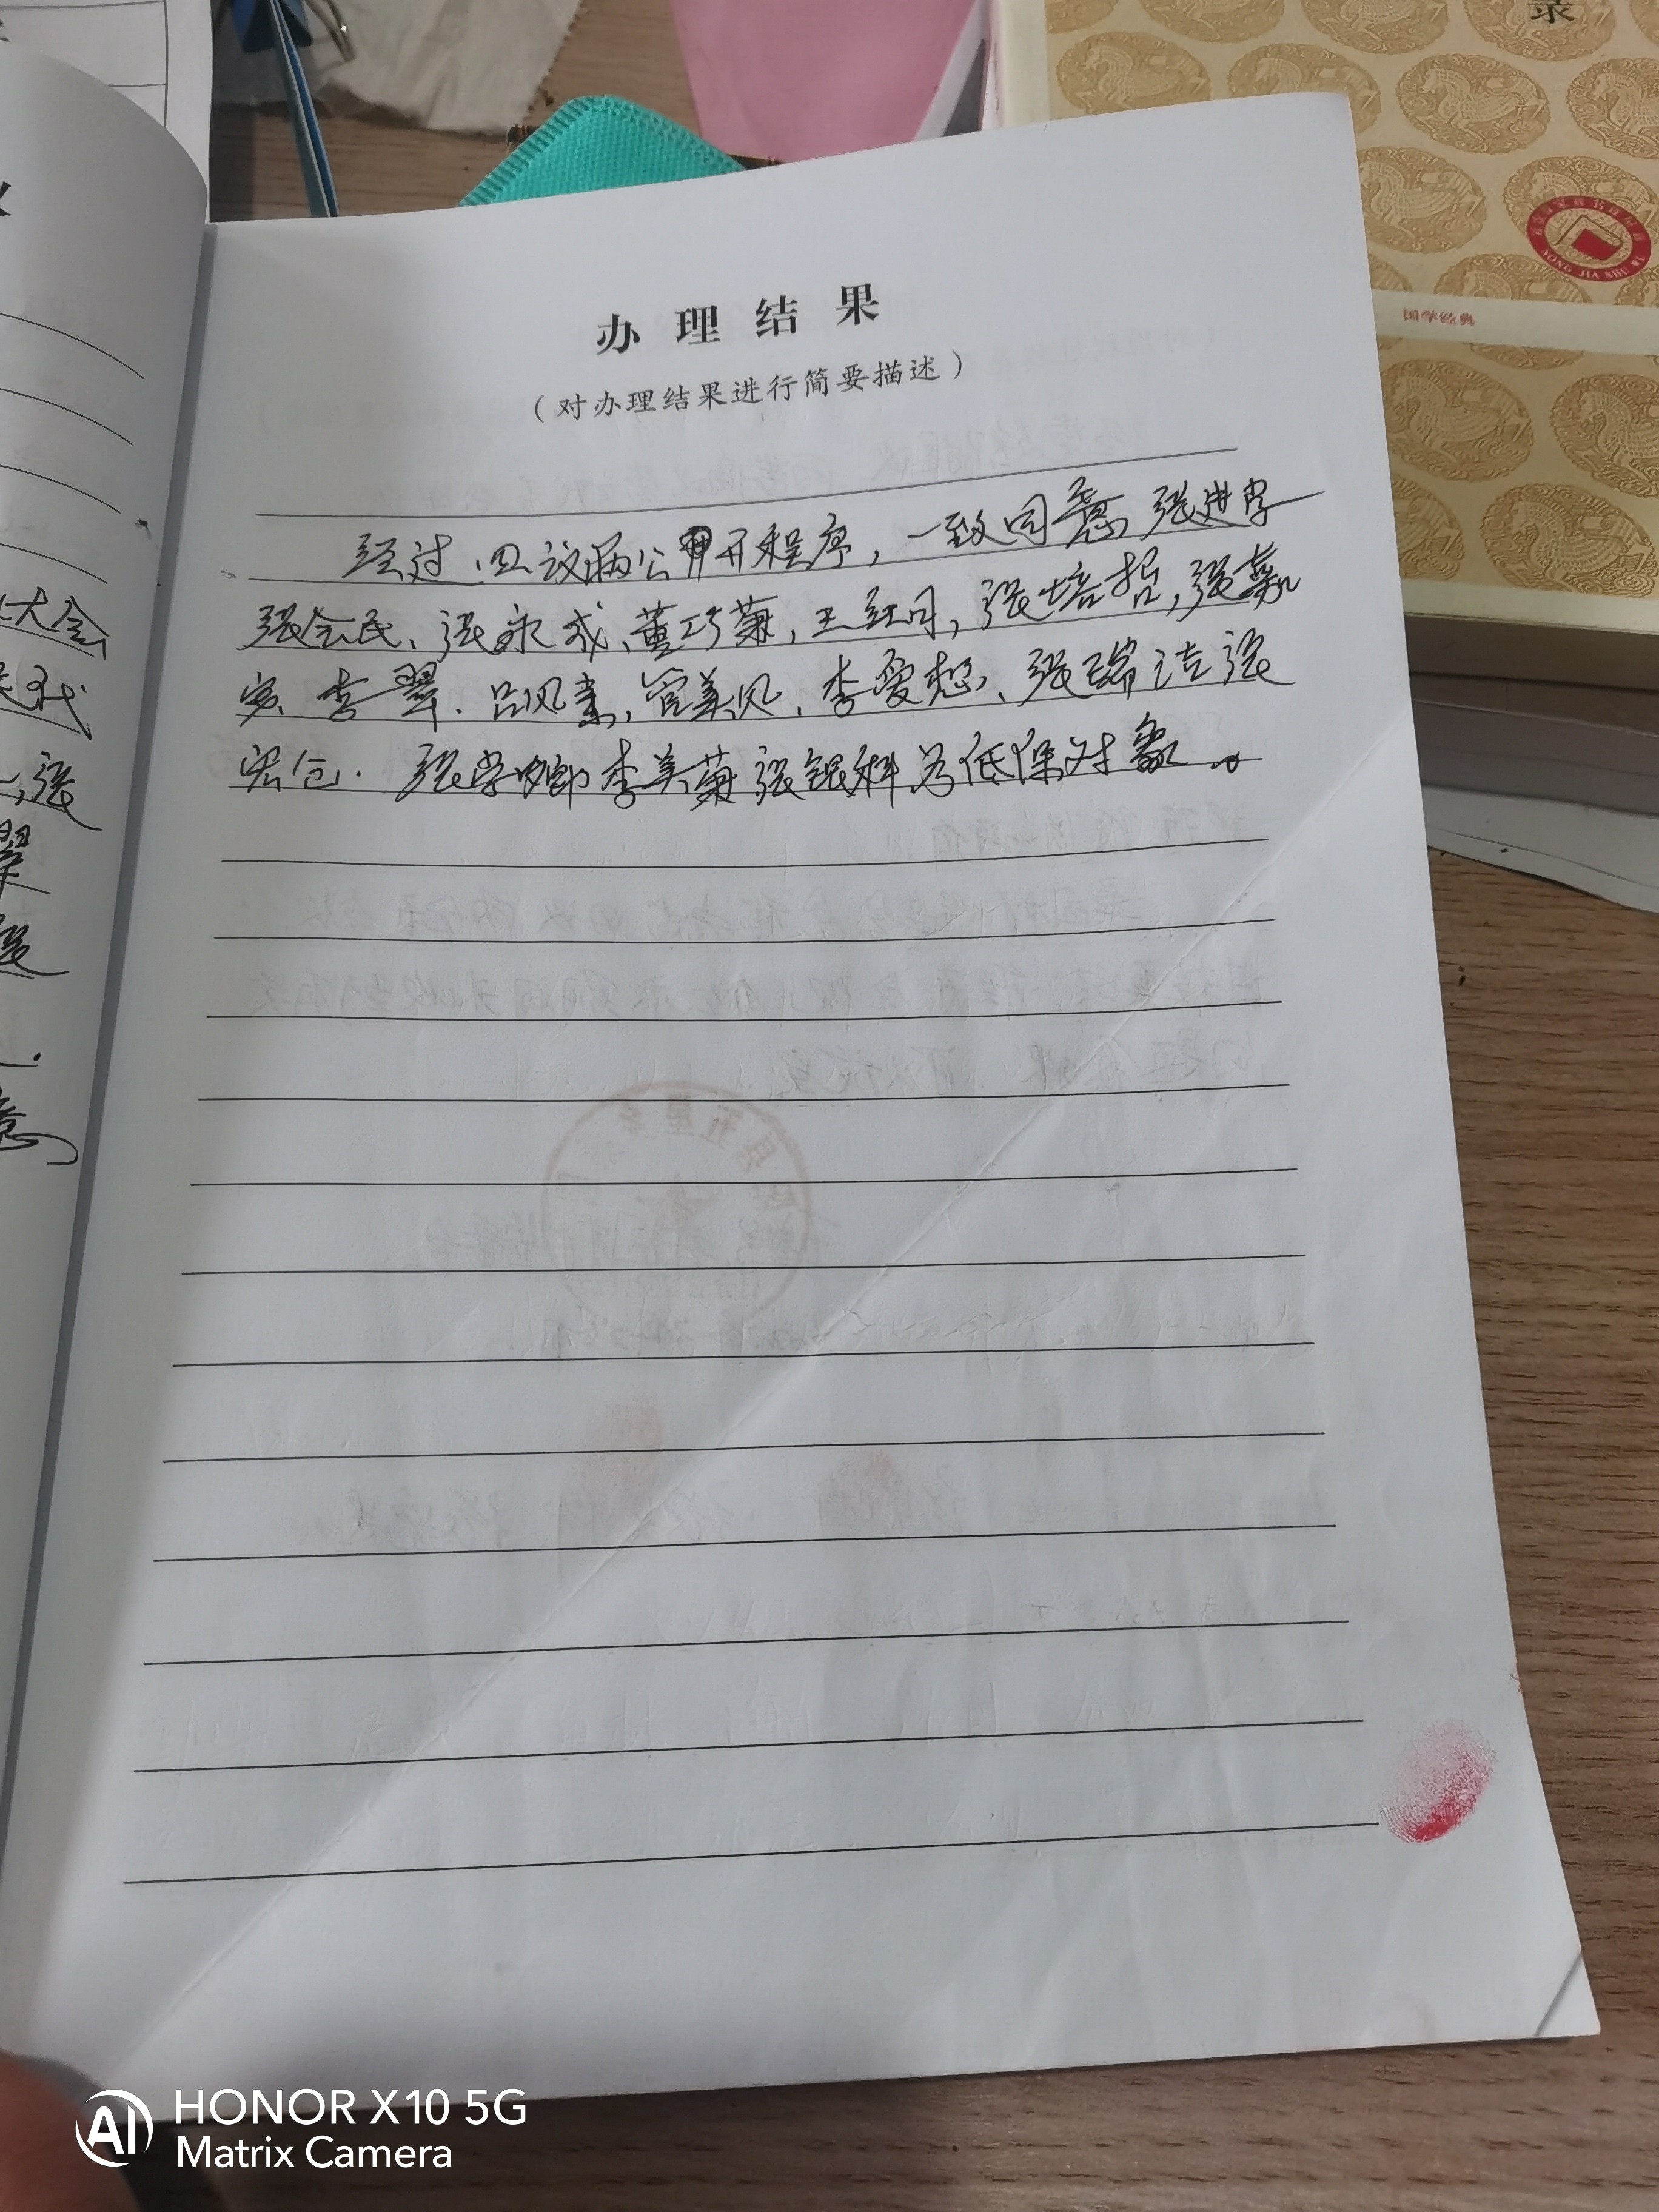 录
NONG JIA SHU WU
国学经典
办理结果
(对办理结果进行简要描述)
经过四议两公开程序,一致同意张进学
张会民、张永成、董巧菊,王红同,张培哲,张
宾、李翠.吕凤素,管美凤.李爱想、张瑞洁张
宏仓.张学卿李美菊张银科为低保对象。
大会
张
翠
意
HONOR X10 5G
Matrix Camera